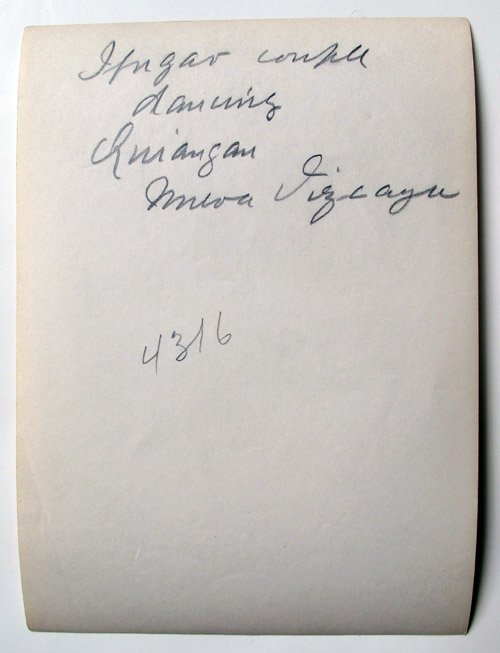 Ifugao couple
dancing
Quiangan
Nueva Vizcaya
4316